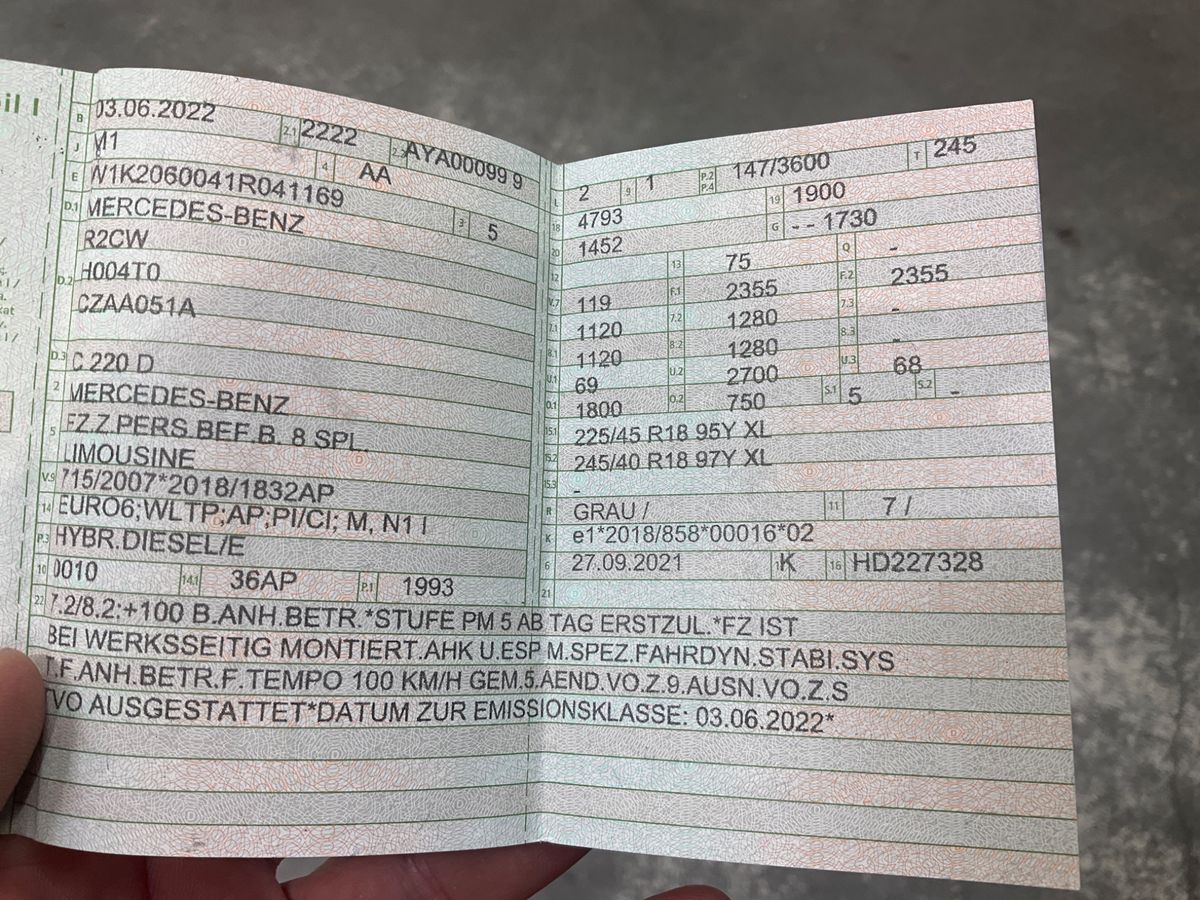 il I
B 03.06.2022 2.1 2222 AYA00099 9
J M1 4 AA
E W1K2060041R041169
D.1 MERCEDES-BENZ 3 5
R2CW
D.2 H004T0
CZAA051A
D.3 C 220 D
2 MERCEDES-BENZ
5 FZ.Z.PERS.BEF.B. 8 SPL.
LIMOUSINE
V.9 715/2007*2018/1832AP
14 EURO6;WLTP;AP;PI/CI; M, N1 I
P.3 HYBR.DIESEL/E
10 0010 14.1 36AP P.1 1993
L 2 9 1 P.2 P.4 147/3600 T 245
18 4793 19 1900
20 1452 G - - 1730
12 13 75 Q -
V.7 119 F.1 2355 F.2 2355
7.1 1120 7.2 1280 7.3 -
8.1 1120 8.2 1280 8.3 -
U.1 69 U.2 2700 U.3 68
O.1 1800 O.2 750 S.1 5 S.2 -
15.1 225/45 R18 95Y XL
15.2 245/40 R18 97Y XL
15.3 -
R GRAU / 11 7 /
K e1*2018/858*00016*02
6 27.09.2021 K 16 HD227328
21
22 7.2/8.2:+100 B.ANH.BETR.*STUFE PM 5 AB TAG ERSTZUL.*FZ IST
BEI WERKSSEITIG MONTIERT.AHK U.ESP M.SPEZ.FAHRDYN.STABI.SYS
T.F.ANH.BETR.F.TEMPO 100 KM/H GEM.5.AEND.VO.Z.9.AUSN.VO.Z.S
TVO AUSGESTATTET*DATUM ZUR EMISSIONSKLASSE: 03.06.2022*